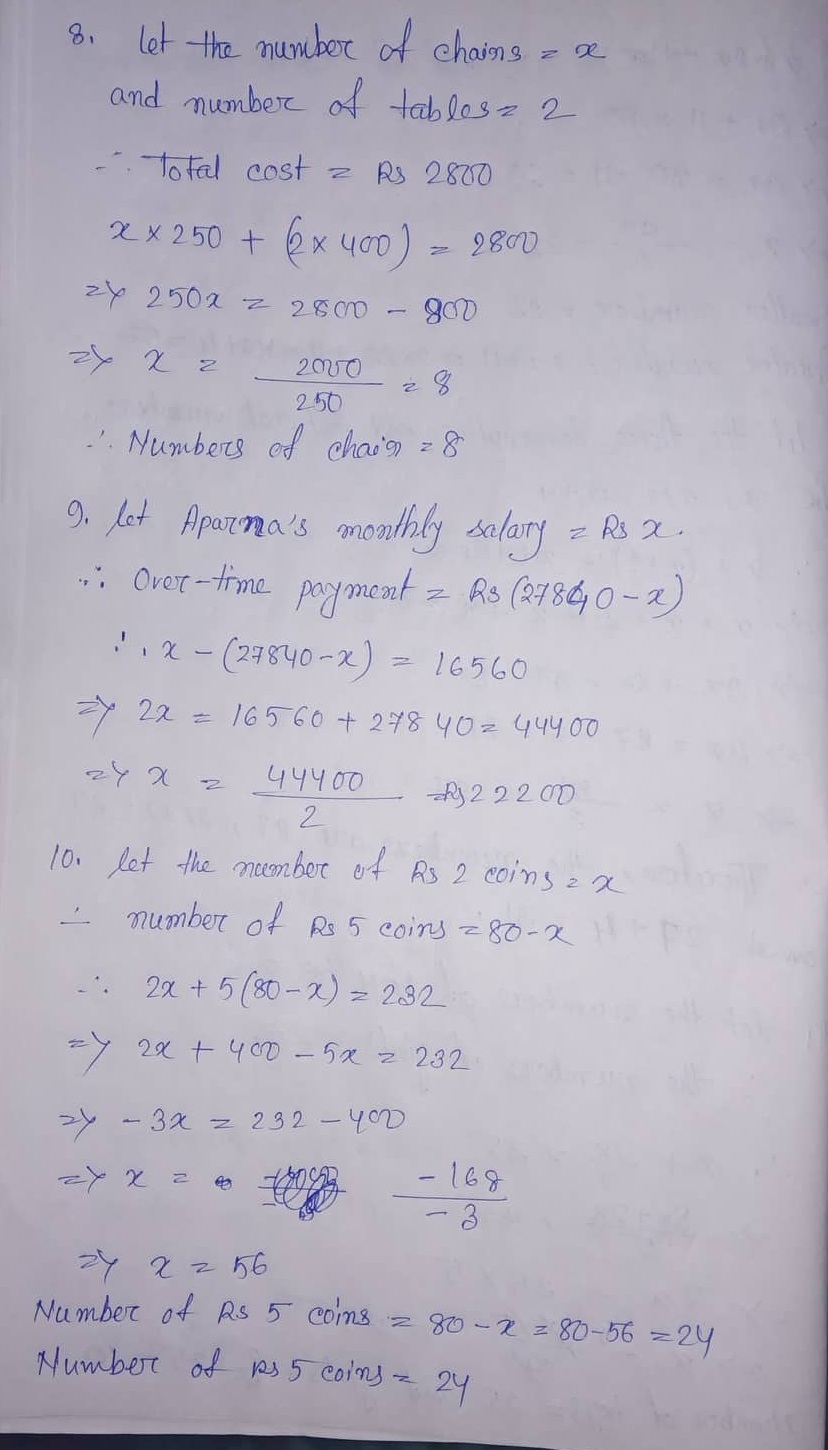 8. let the number of chains = x
and number of tables = 2
∴ Total cost = Rs 2800
x × 250 + (2 × 400) = 2800
=> 250x = 2800 - 800
=> x = 2000/250 = 8
∴ Numbers of chair = 8
9. let Aparna's monthly salary = Rs x.
∴ Over-time payment = Rs (27840 - x)
∴ x - (27840 - x) = 16560
=> 2x = 16560 + 27840 = 44400
=> x = 44400/2 = Rs 22200
10. let the number of Rs 2 coins = x
∴ number of Rs 5 coins = 80 - x
∴ 2x + 5(80 - x) = 232
=> 2x + 400 - 5x = 232
=> - 3x = 232 - 400
=> x = -168/-3
=> x = 56
Number of Rs 5 coins = 80 - x = 80 - 56 = 24
Number of Rs 5 coins = 24